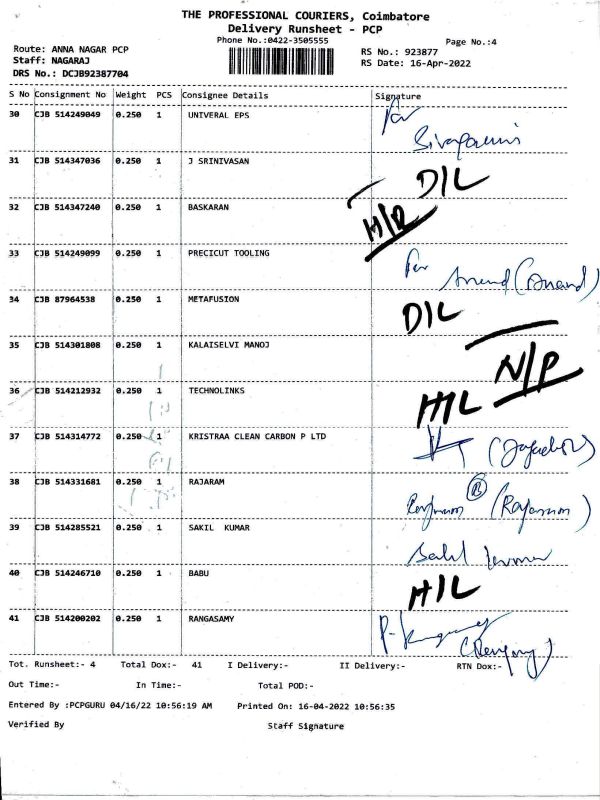 THE PROFESSIONAL COURIERS, Coimbatore
Delivery Runsheet - PCP
Phone No.:0422-3505555
Page No.:4
Route: ANNA NAGAR PCP
Staff: NAGARAJ
DRS No.: DCJB92387704
RS No.: 923877
RS Date: 16-Apr-2022
S No Consignment No Weight PCS Consignee Details Signature
30 CJB 514249049 0.250 1 UNIVERAL EPS For
31 CJB 514347036 0.250 1 J SRINIVASAN D/L
32 CJB 514347240 0.250 1 BASKARAN H/R
33 CJB 514249099 0.250 1 PRECICUT TOOLING For Anand (Anand)
34 CJB 87964538 0.250 1 METAFUSION D/L
35 CJB 514301808 0.250 1 KALAISELVI MANOJ N/P
36 CJB 514212932 0.250 1 TECHNOLINKS H/L
37 CJB 514314772 0.250 1 KRISTRAA CLEAN CARBON P LTD
38 CJB 514331681 0.250 1 RAJARAM
39 CJB 514285521 0.250 1 SAKIL KUMAR
40 CJB 514246710 0.250 1 BABU H/L
41 CJB 514200202 0.250 1 RANGASAMY
Tot. Runsheet:- 4 Total Dox:- 41 I Delivery:- II Delivery:- RTN Dox:-
Out Time:- In Time:- Total POD:-
Entered By :PCPGURU 04/16/22 10:56:19 AM Printed On: 16-04-2022 10:56:35
Verified By Staff Signature